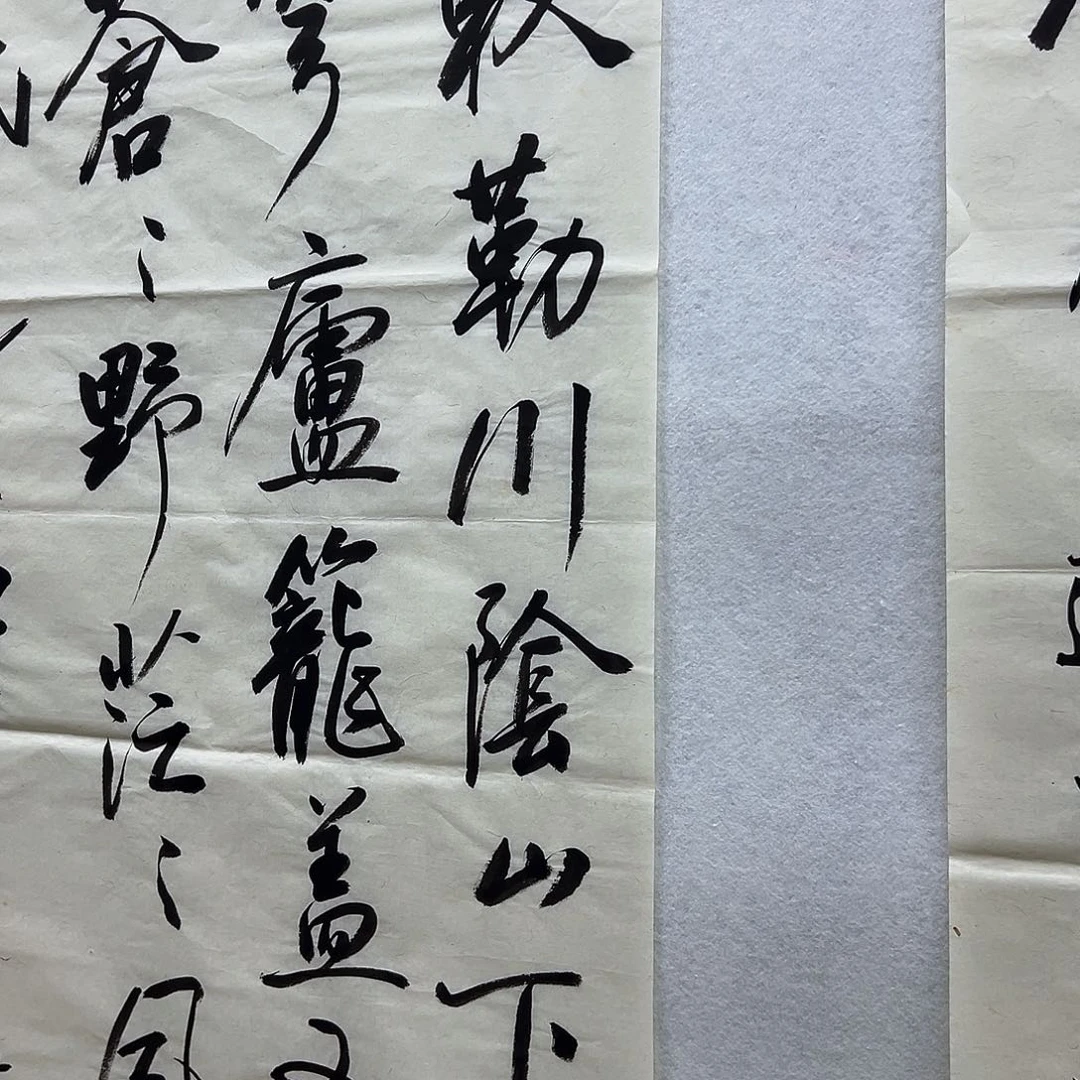 敕勒川陰山下
穹廬籠盖
蒼〻野茫〻風